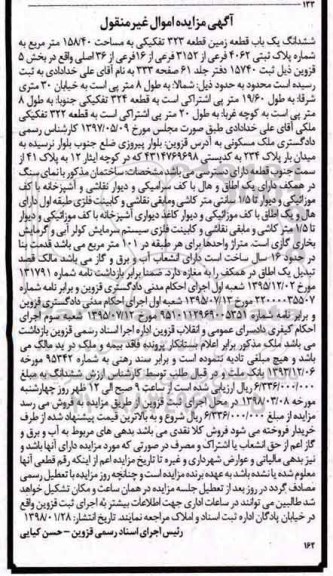 ۱۳۳
آگهی مزایده اموال غیرمنقول
ششدانگ یک باب قطعه زمین قطعه ۳۲۳ تفکیکی به مساحت ۱۵۸/۴۰ متر مربع به
شماره پلاک ثبتی ۴۰۶۲ فرعی از ۳۱۵۲ فرعی از ۱۶فرعی از ۳۶ اصلی واقع در بخش ۵
قزوین ذیل ثبت ۱۵۷۴۰ دفتر جلد ۶۱ صفحه ۳۳۳ به نام آقای علی خدادادی به ثبت
رسیده است محدود به حدود ذیل: شمالا: به طول ۸ متر پی است به خیابان ۳۰ متری
شرقا: به طول ۱۹/۶۰ متر پی اشتراکی است به قطعه ۳۲۴ تفکیکی جنوبا: به طول ۸
متر پی است به کوچه غربا: به طول ۲۰ متر پی اشتراکی است به قطعه ۳۲۲ تفکیکی
ملکی آقای علی خدادادی طبق صورت مجلس مورخ ۱۳۹۷/۰۵/۰۹ کارشناس رسمی
دادگستری ملک مسکونی به آدرس قزوین: بلوار پیروزی ضلع جنوب بلوار نرسیده به
میدان بار پلاک ۲۳۴ به کدپستی ۴۳۱۴۷۶۹۶۹۸ که در کوچه ایثار ۱۲ به پلاک ۴۱ از
سمت جنوب قطعه دارای دسترسی می باشد مشخصات: ساختمان مذکور با نمای سنگ
در همکف دارای یک اطاق و هال با کف سرامیکی و دیوار نقاشی و آشپزخانه با کف
موزائیکی و دیوار تا ۱/۵ سانتی متر کاشی ومابقی نقاشی و کابینت فلزی طبقه اول دارای
هال و یک اطاق با کف موزائیکی و دیوار کاغذ دیواری آشپزخانه با کف موزائیکی و دیوار
تا ۱/۵ متر کاشی و مابقی نقاشی و کابینت فلزی سیستم سرمایش کولر آبی و گرمایش
بخاری گازی است. متراژ واحدها برای هر طبقه در ۱۰۱ متر مربع می باشد قدمت بنا
در حدود ۱۶ سال ساخت است دارای انشعاب آب و برق و گاز می باشد مالک قصد
تبدیل یک اطاق در همکف را به مغازه دارد. ضمنا برابر بازداشت نامه شماره ۱۳۱۷۹۱
مورخ ۱۳۹۵/۱۲/۰۲ شعبه اول اجرای احکام مدنی دادگستری قزوین و برابر نامه شماره
۲۲۰۰۰۰۳۵۵۰۷ مورخ ۱۳۹۵/۰۷/۱۳ شعبه اول اجرای احکام مدنی دادگستری قزوین
و برابر نامه شماره ۹۵۱۰۱۱۲۹۶۹۰۰۵۳۵۱ مورخ ۱۳۹۵/۰۷/۱۲ شعبه سوم اجرای
احکام کیفری دادسرای عمومی و انقلاب قزوین اداره اجرا اسناد رسمی قزوین بازداشت
می باشد ملک مذکور برابر اعلام بستانکار پرونده فاقد بیمه و ملک در ید مالک می
باشد و هیچ مبلغی تادیه نشده است و برابر سند رهنی به شماره ۹۵۳۴۲ مورخه
۱۳۹۳/۱۲/۰۶ بانک ملت و در قبال طلب توسط کارشناس ارزش ششدانگ به مبلغ
۶/۳۳۶/۰۰۰/۰۰۰ ریال ارزیابی شده است از ساعت ۹ صبح الی ۱۲ ظهر روز چهارشنبه
مورخه ۱۳۹۸/۰۳/۰۸ در محل اجرای ثبت قزوین از طریق مزایده به فروش می رسد
مزایده از مبلغ ۶/۳۳۶/۰۰۰/۰۰۰ ریال شروع و به بالاترین قیمت پیشنهاد شده از طرف
خریدار فروخته می شود فروش کلا نقدی می باشد بدهی های مربوط به آب و برق و
گاز اعم از حق انشعاب یا اشتراک و مصرف در صورتی که مورد مزایده دارای آنها باشد و
نیز بدهی مالیاتی و عوارض شهرداری و غیره تا تاریخ مزایده اعم از اینکه رقم قطعی آنها
معلوم شده یا نشده باشد به عهده برنده مزایده است و چنانچه روز مزایده با تعطیل رسمی
مصادف گردد در روز بعد از تعطیل جلسه مزایده در همان ساعت و مکان تشکیل خواهد
شد طالبین می توانند در ساعات اداری جهت اطلاعات بیشتر به اجرای ثبت قزوین واقع
در خیابان پادگان اداره ثبت اسناد و املاک مراجعه نمایند. تاریخ انتشار: ۱۳۹۸/۰۱/۲۸
رئیس اجرای اسناد رسمی قزوین – حسن کیایی
۱۶۲